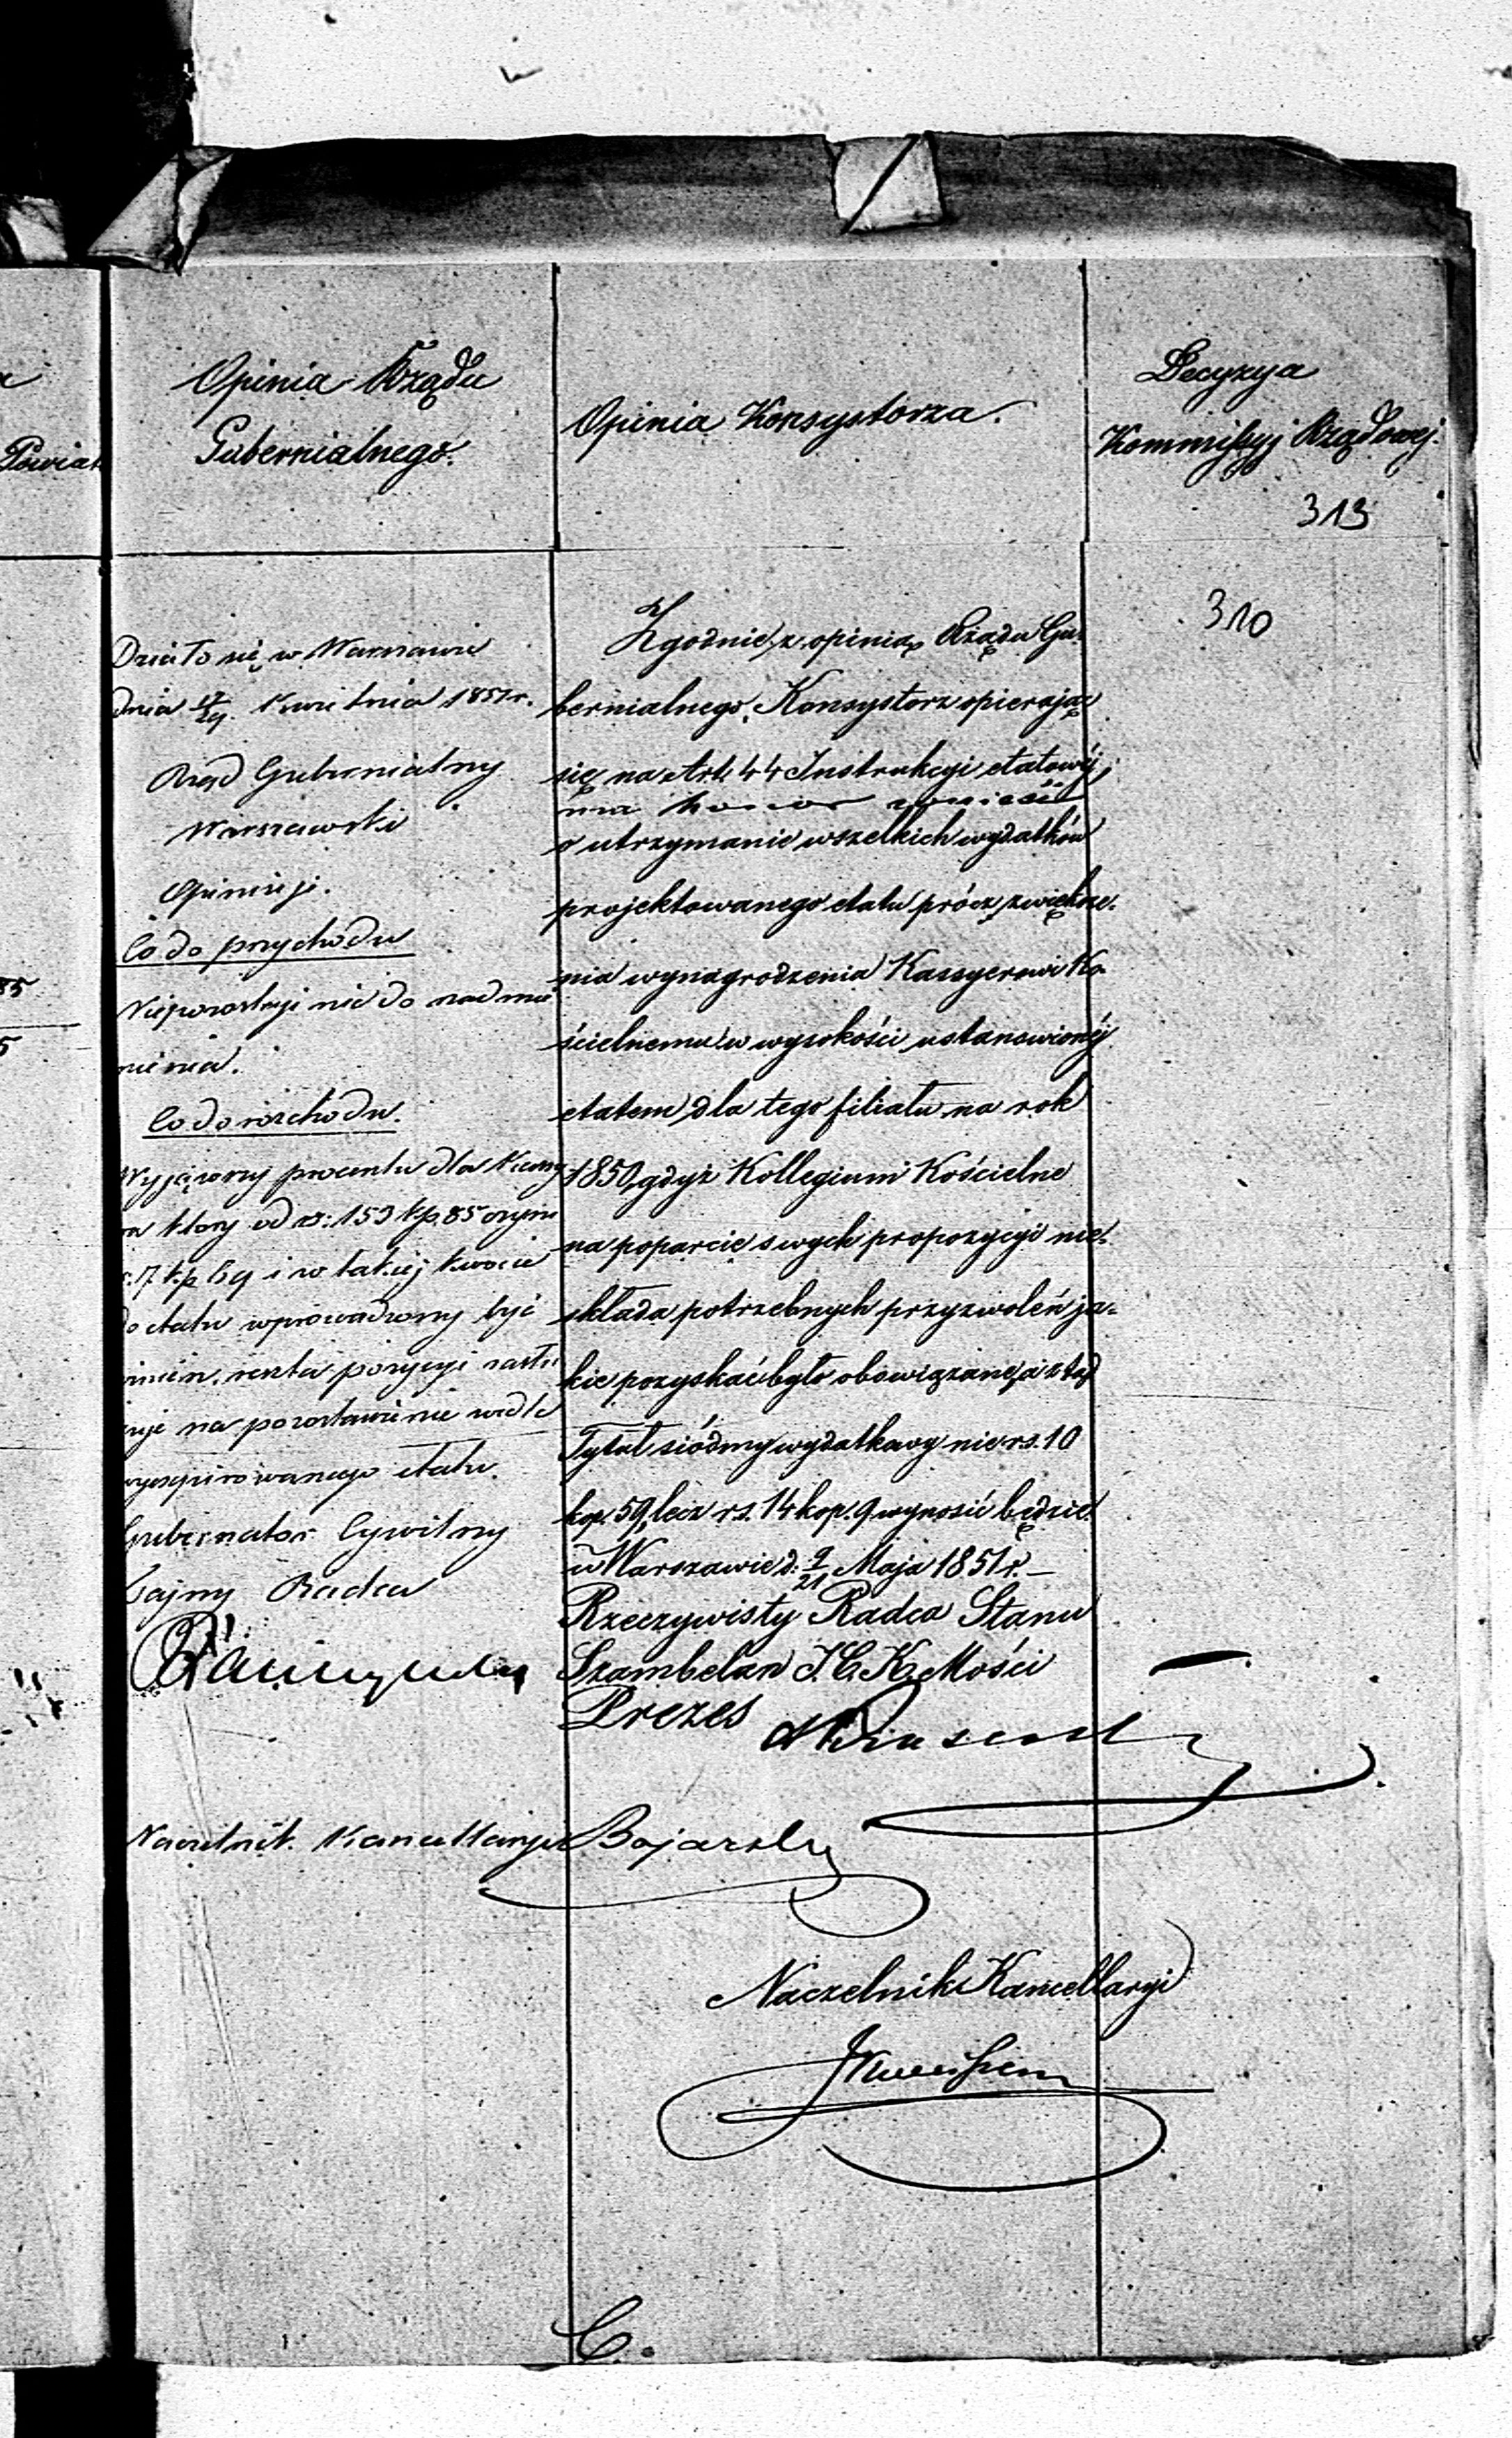 Opinia Rządu
Gubernialnego.
Działo się w Warszawie
dnia 17/29. Kwietnia 1851 r.
Rząd Gubernialny
Warszawski
Opiniuje.
Co do przychodu
Niepozostaje nic do nadmie
nienia.
Co do rozchodu.
Wyjąwszy procentu dla Kassy
ra który od rs: 153 kp. 85 czyni
7 kp 69 i w takiej kwocie
do etatu wprowadzony być
winien, reszta pozycyi zasłu
guje na pozostawienie wedle
wyexpirowanego etatu.
Gubernator Cywilny
Tajny Radca
Naczelnik Kancellaryi Bojarsky
Opinia Konsystorza.
Zgodnie z opinią Rządu Gu-
bernialnego, Konsystorz opierając
się na Art. 44 Instrukcyi etatowéj,
ma honor wnieść
o utrzymanie wszelkich wydatków
projektowanego etatu prócz zwiększe-
nia wynagrodzenia Kassyerowi Ko-
ścielnemu w wysokości ustanowionéj
etatem dla tego filiału na rok
1850, gdyż Kollegium Kościelne
na poparcie swych propozycyi nie-
składa potrzebnych przyzwoleń ja-
kie pozyskać było obowiązane, a ztąd
Tytuł siódmy wydatkowy nie rs. 10
kop. 59, lecz rs. 14 kop. 9 wynosić będzie.
w Warszawie d: 9/21 Maja 1851 r. —
Rzeczywisty Radca Stanu
Szambelan J. C. K. Mości
Prezes
Naczelnik Kancellaryi
C.
Decyzya
Kommissyj Rządowej.
313
310
Powiat
85
5